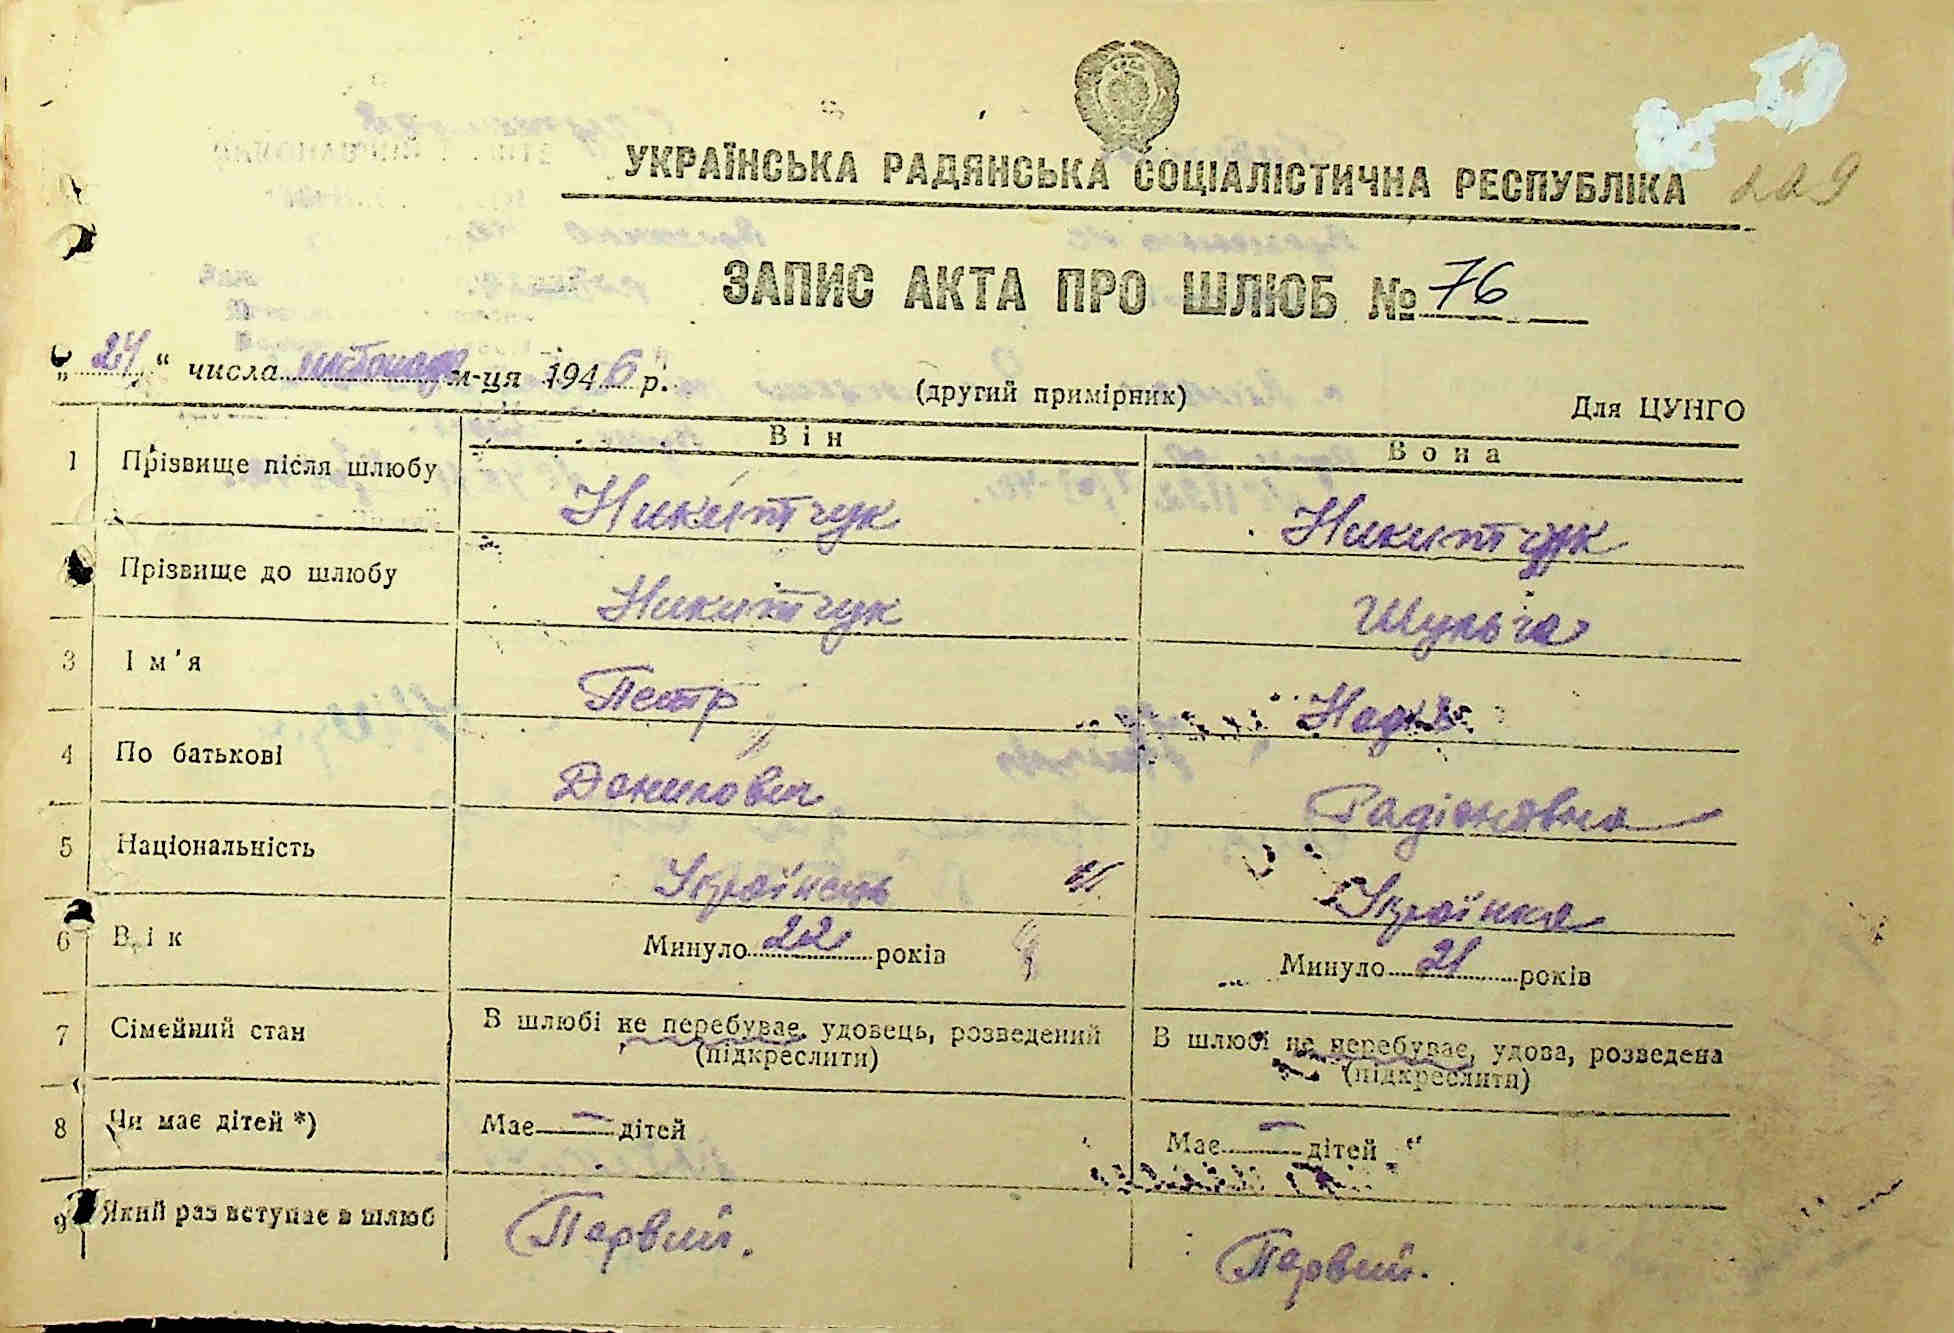 УКРАЇНСЬКА РАДЯНСЬКА СОЦІАЛІСТИЧНА РЕСПУБЛІКА 229
ЗАПИС АКТА ПРО ШЛЮБ № 76
„24“ числа листопада м-ця 1946 р.
(другий примірник)
Для ЦУНГО
Він Вона
1 Прізвище після шлюбу Никитчук Никитчук
Прізвище до шлюбу Никитчук Шульга
3 Ім'я Петр Надія
4 По батькові Данилович Радіоновна
5 Національність Українець Українка
6 Вік Минуло 22 років Минуло 21 років
7 Сімейний стан В шлюбі не перебуває, удовець, розведений В шлюбі не перебуває, удова, розведена
(підкреслити) (підкреслити)
8 Чи має дітей *) Має — дітей Має — дітей
9 Який раз вступає в шлюб Первий. Первий.